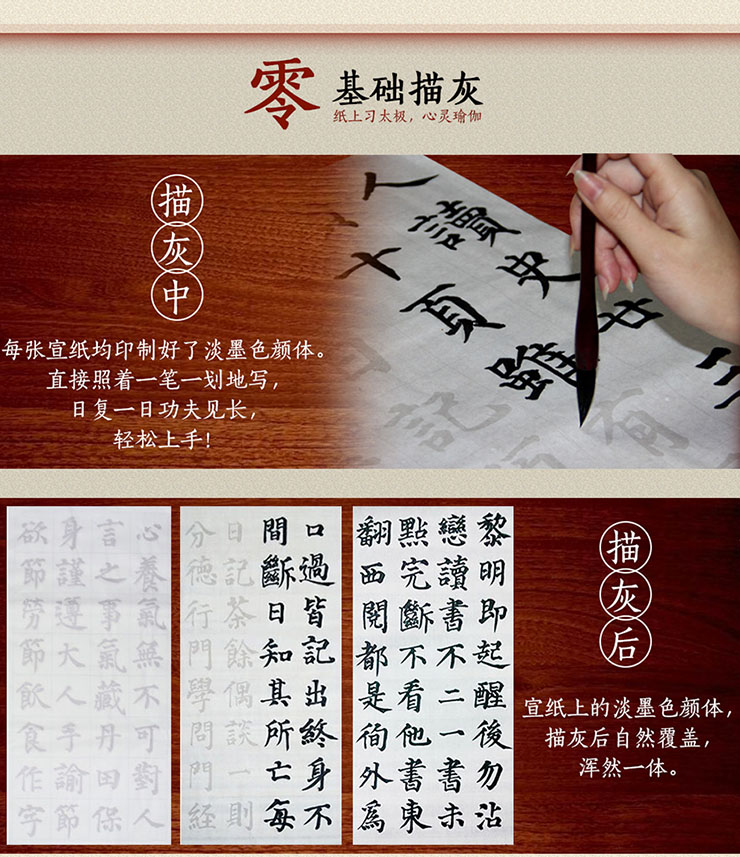 零基础描灰
纸上习太极，心灵瑜伽
描灰中
每张宣纸均印制好了淡墨色颜体。
直接照着一笔一划地写，
日复一日功夫见长，
轻松上手！
人
讀史廿三
十頁雖有
記
黎明即起醒後勿沾
戀讀書不二一書未
點完斷不看他書東
翻西閱都是徇外爲
口過皆記出終身不
間斷日知其所亡每
日記茶餘偶談一則
分德行門學問門經
心養氣無不可對人
言之事氣藏丹田保
身謹遵大人手諭節
欲節勞節飲食作字
描灰后
宣纸上的淡墨色颜体，
描灰后自然覆盖，
浑然一体。